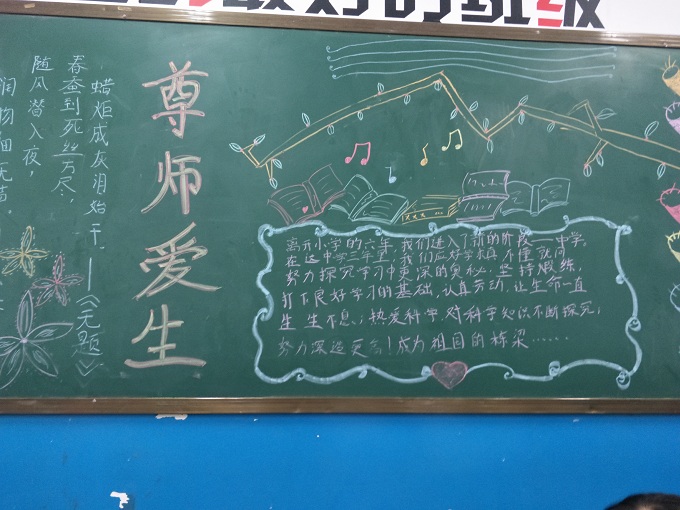 最好的班级
尊师爱生
春蚕到死丝方尽,
蜡炬成灰泪始干.——《无题》
随风潜入夜,
润物细无声.
离开小学的六年,我们进入了新的阶段——中学.
在这中学三年里,我们应好学求真,不懂就问
努力探究学习中更深的奥秘.坚持煅练,
打下良好学习的基础,认真劳动,让生命一直
生生不息.;热爱科学,对科学知识不断探究;
努力深造更会!成为祖国的栋梁......